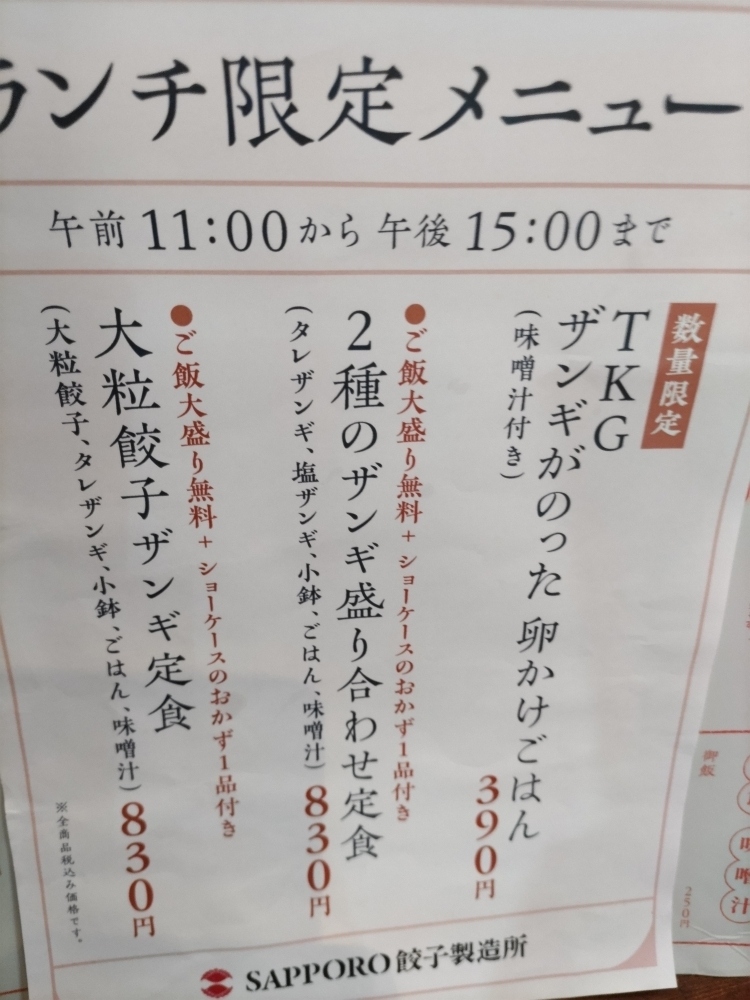 ランチ限定メニュー
午前11:00から午後15:00まで
数量限定
TKG
ザンギがのった卵かけごはん
(味噌汁付き)
390円
●ご飯大盛り無料+ショーケースのおかず1品付き
2種のザンギ盛り合わせ定食
(タレザンギ、塩ザンギ、小鉢、ごはん、味噌汁)
830円
●ご飯大盛り無料+ショーケースのおかず1品付き
大粒餃子ザンギ定食
(大粒餃子、タレザンギ、小鉢、ごはん、味噌汁)
830円
※全商品税込み価格です。
SAPPORO餃子製造所
御飯
250円
味噌汁